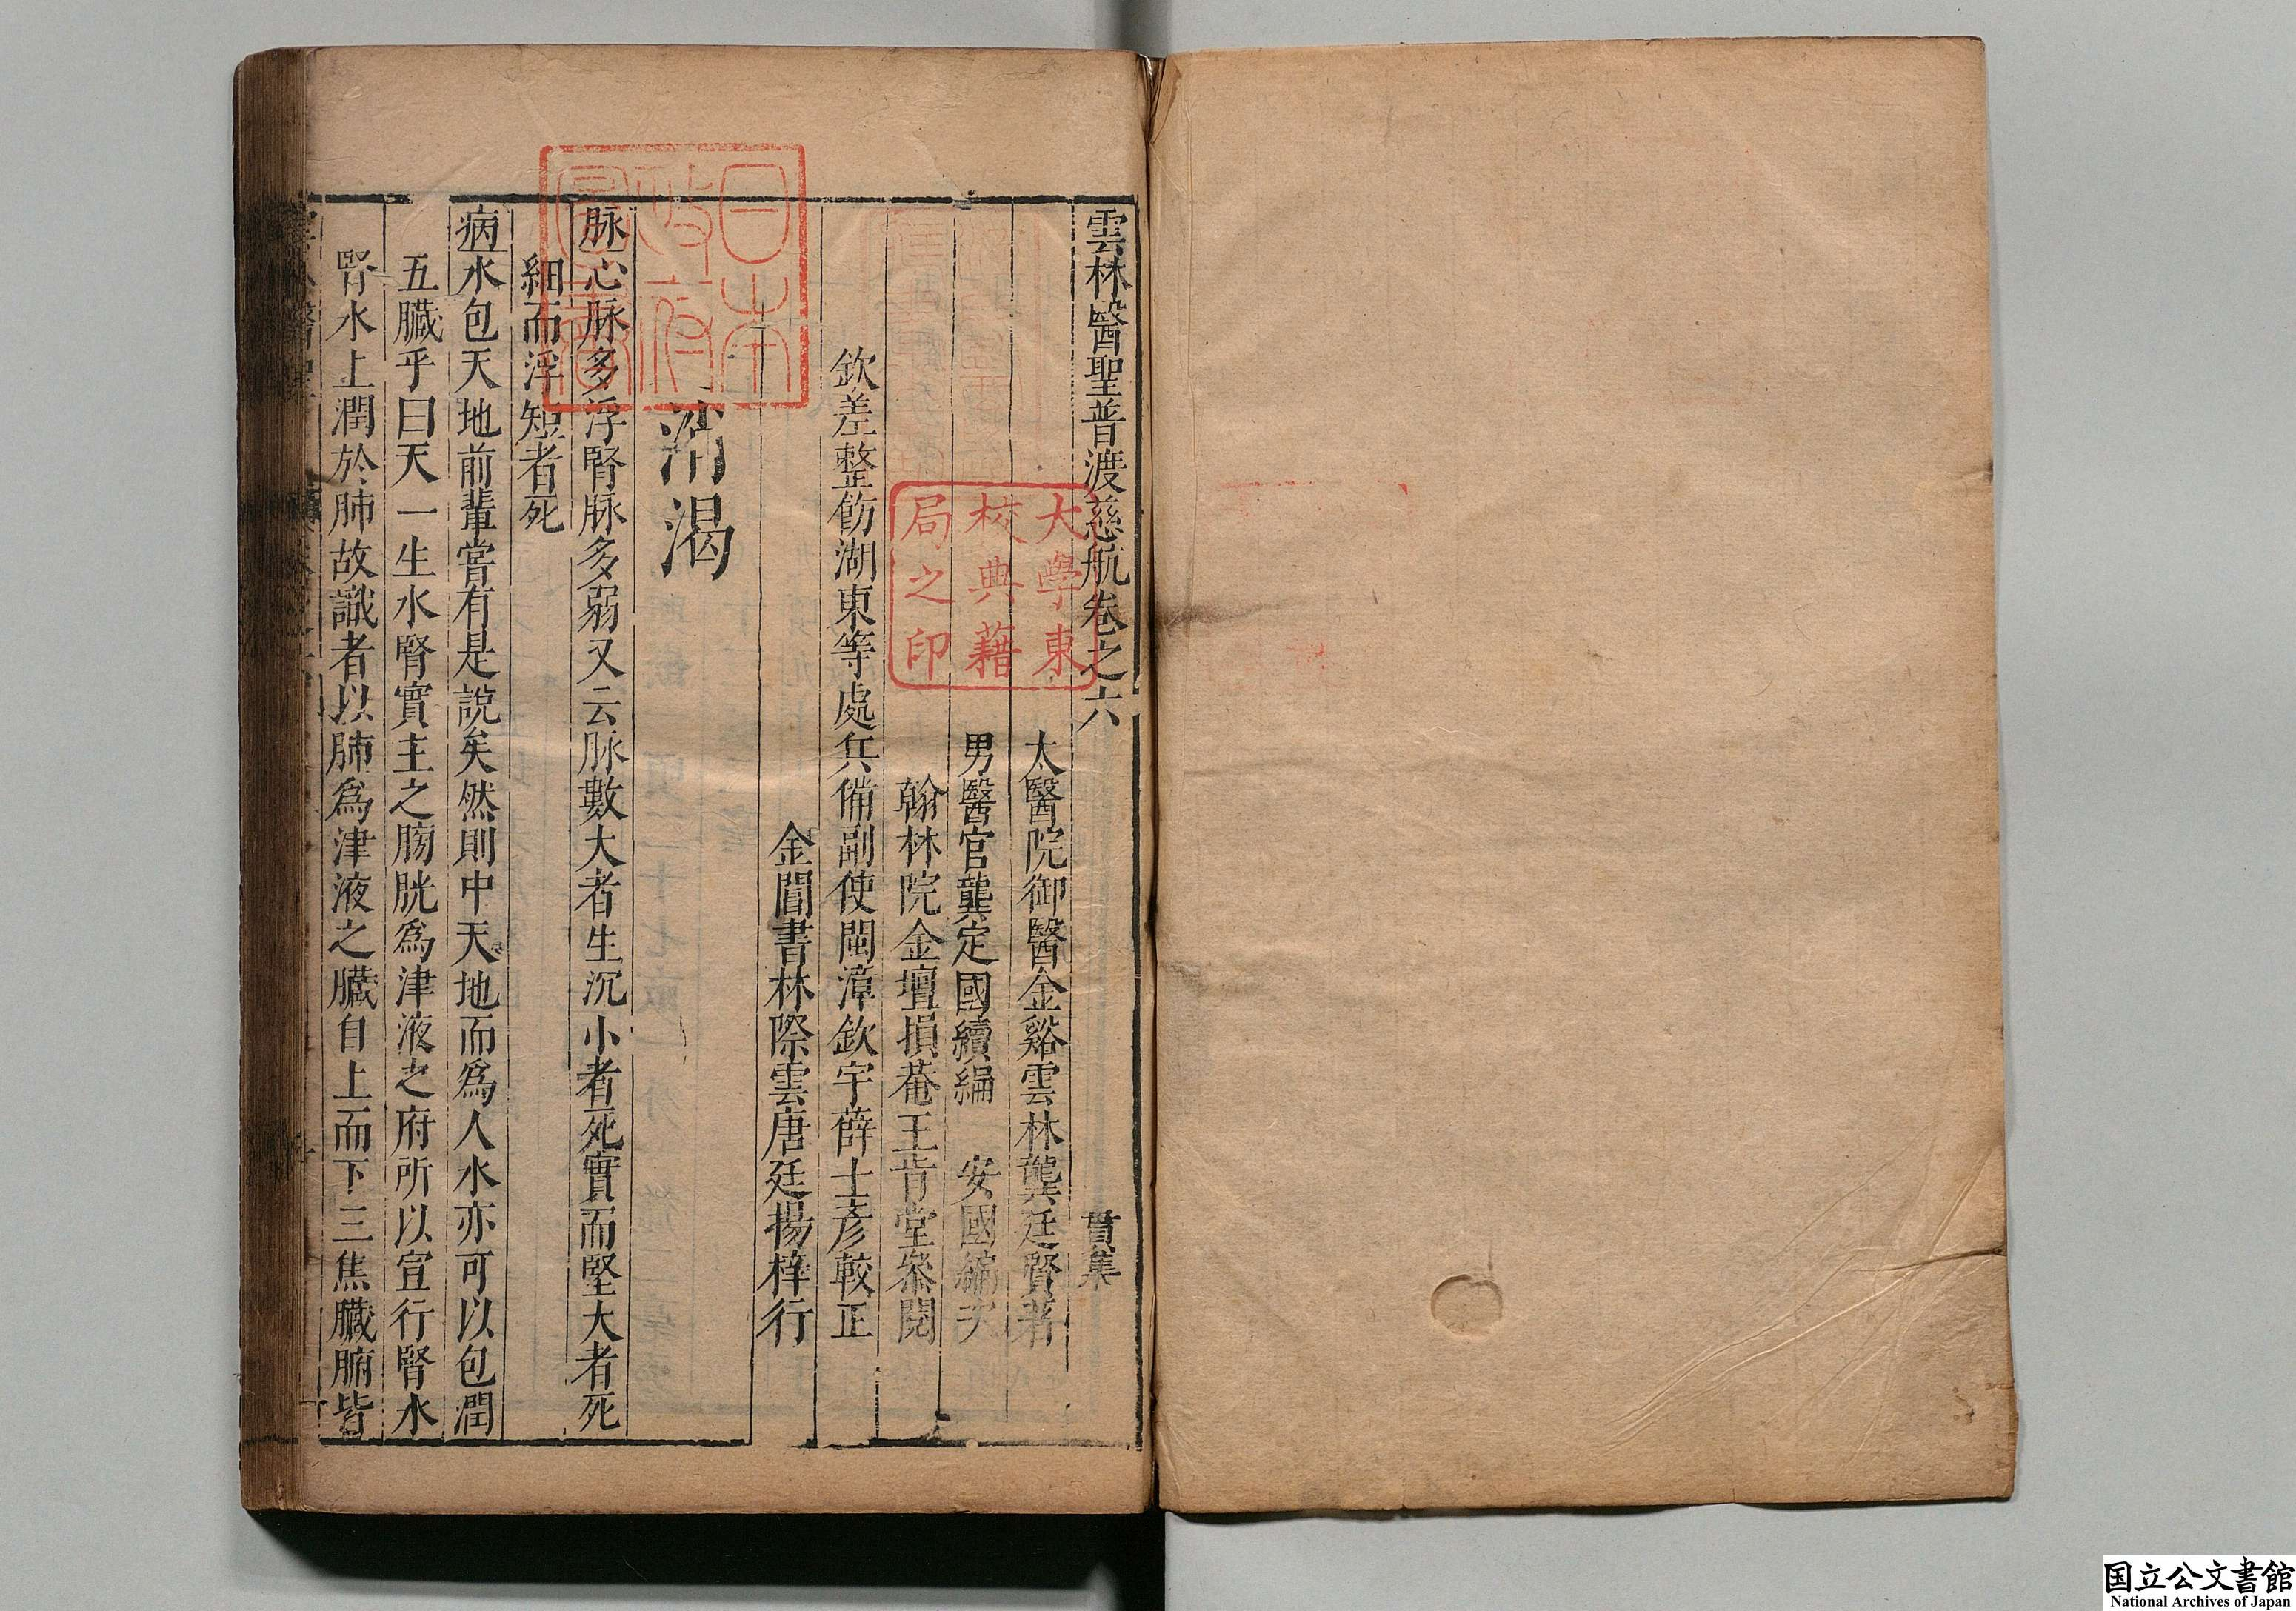 雲林醫聖普渡慈航卷之六
貫集
太醫院御醫金谿雲林龔廷賢著
男醫官龔定國續編 安國編次
翰林院金壇損菴王肯堂叅閱
欽差整飭湖東等處兵備副使閩漳欽宇薛士彥較正
金閶書林際雲唐廷揚梓行
消渴
脉心脉多浮腎脉多弱又云脉數大者生沉小者死實而堅大者死
細而浮短者死
病水包天地前輩嘗有是說矣然則中天地而爲人水亦可以包潤
五臟乎曰天一生水腎實主之膀胱爲津液之府所以宣行腎水
腎水上潤於肺故識者以肺爲津液之臟自上而下三焦臟腑皆
日本
政府
圖書
大學東
校典籍
局之印
国立公文書館
National Archives of Japan